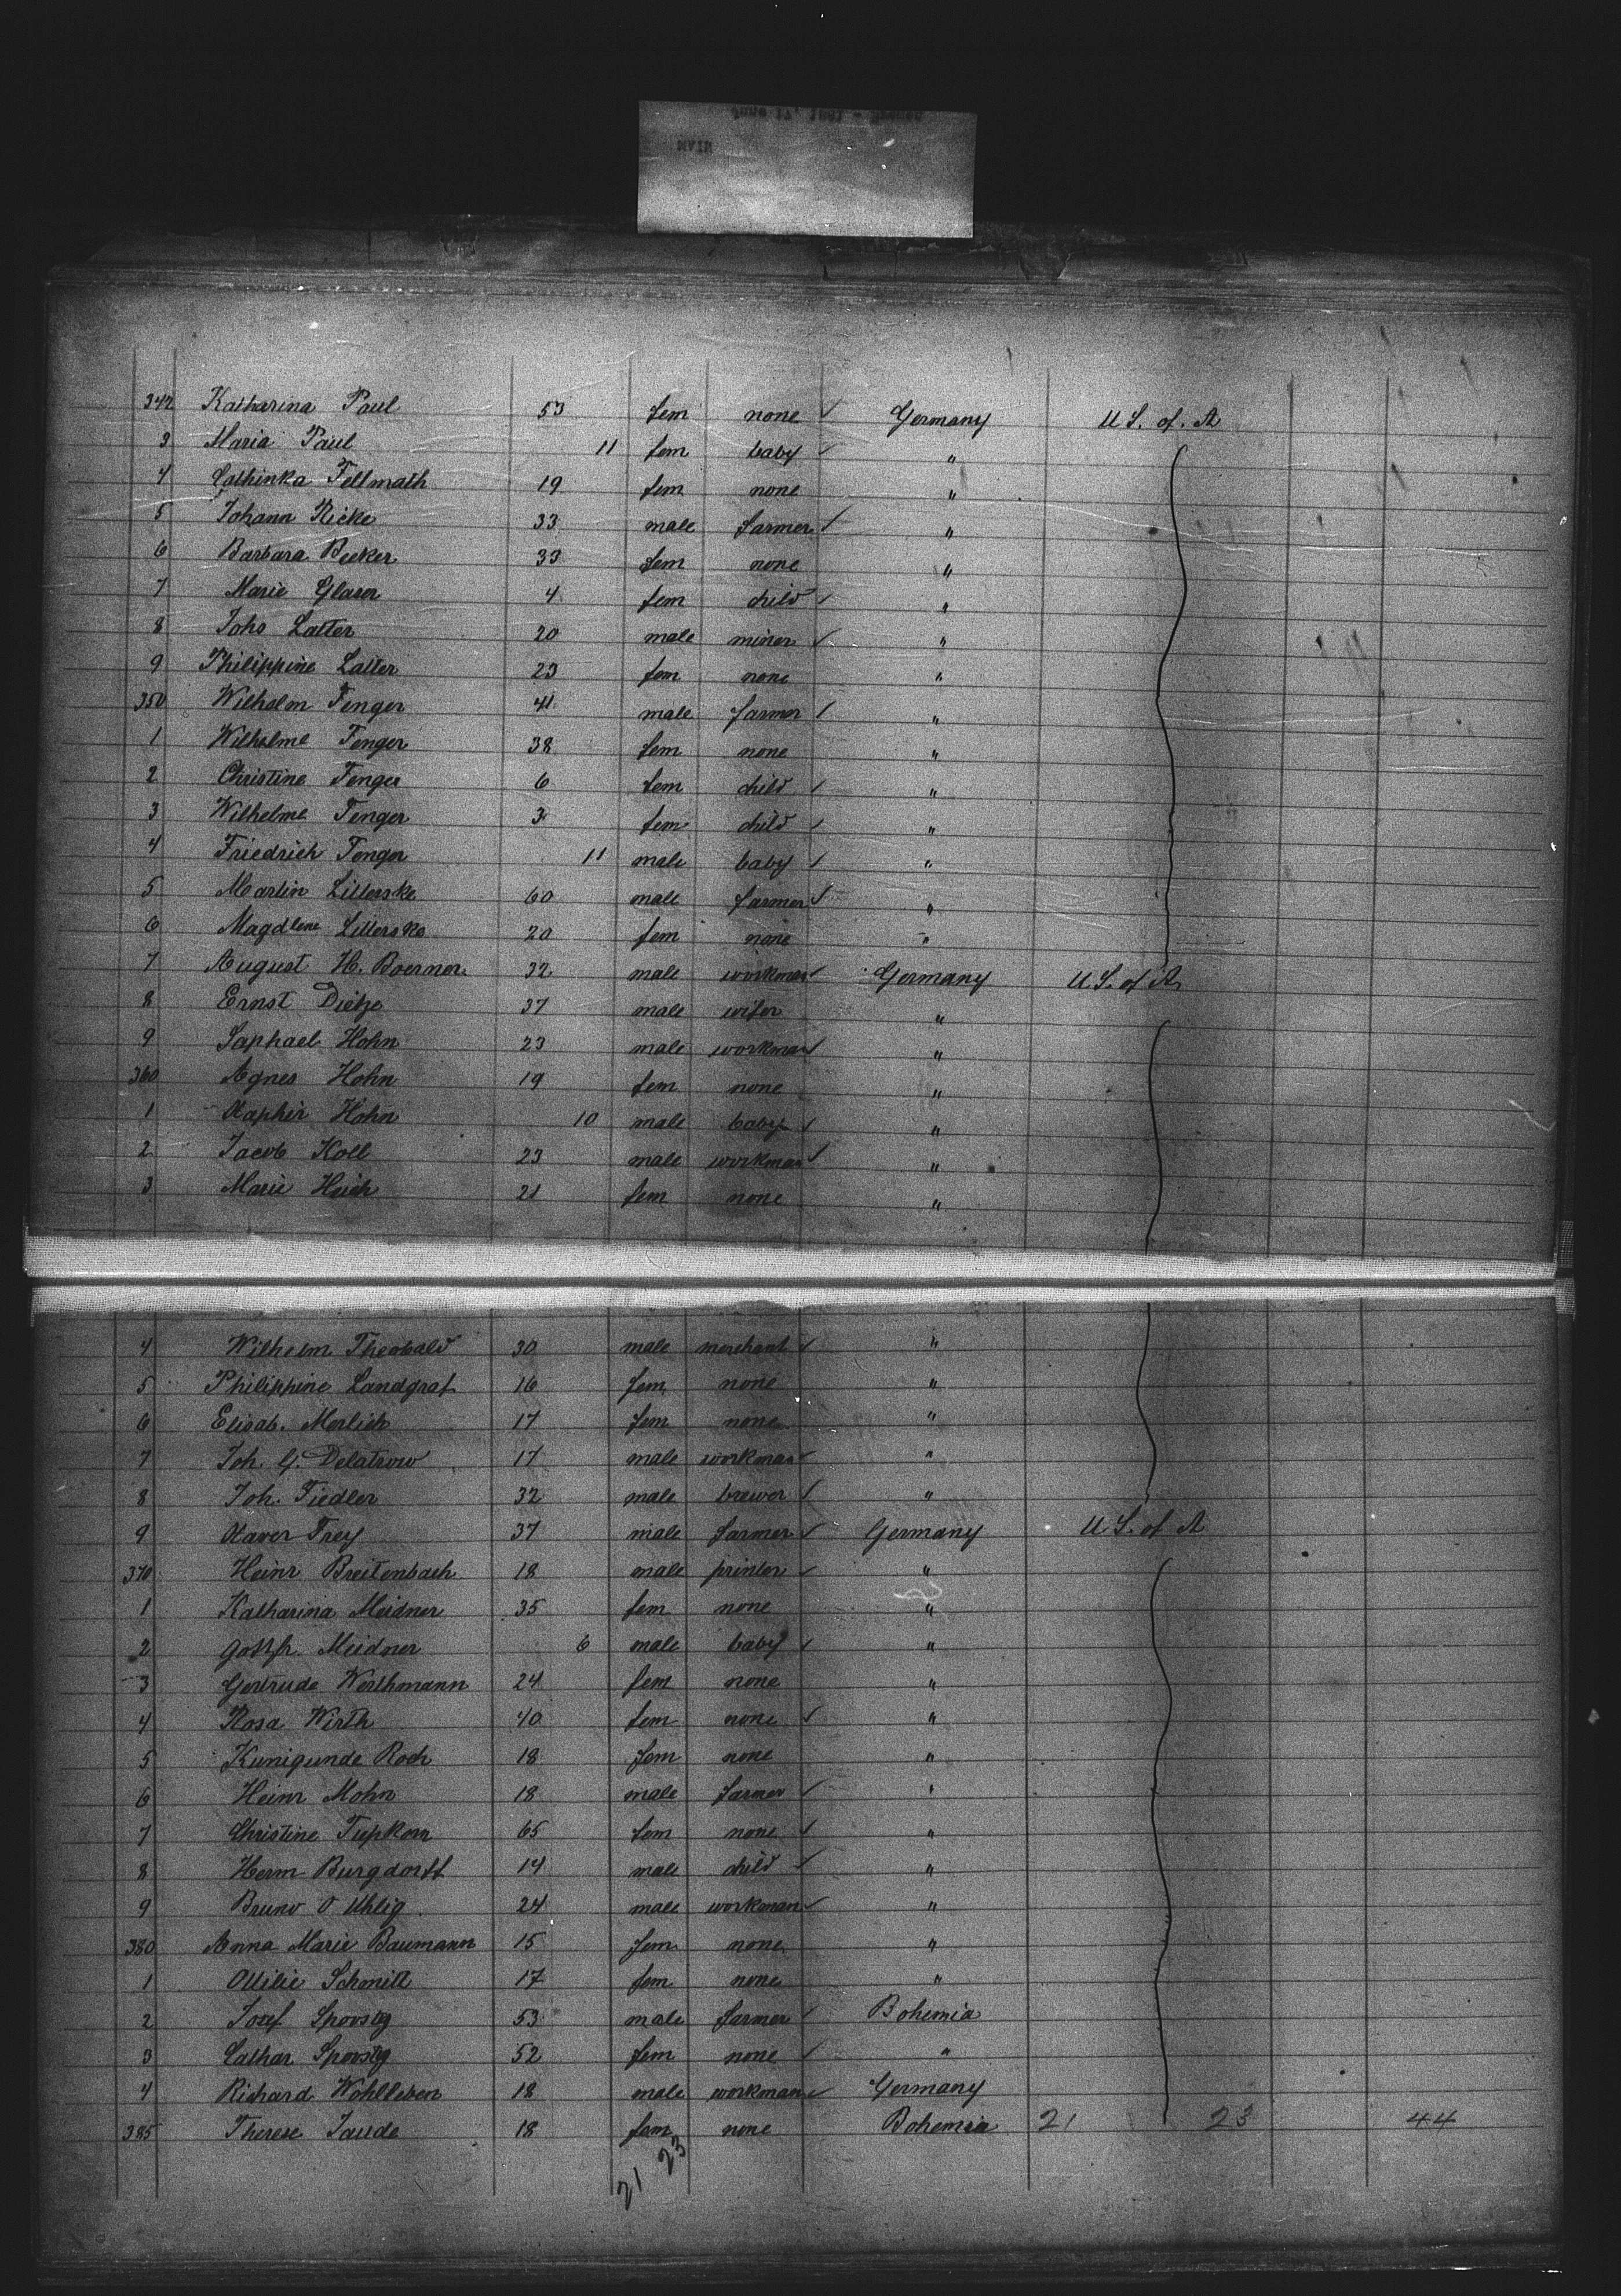 MAIN
342 Katharina Paul 53 fem none ✓ Germany U S. of. A
3 Maria Paul 11 fem baby ✓ "
4 Cathinka Fellmath 19 fem none "
5 Johann Ricke 33 male farmer ✓ "
6 Barbara Becker 33 fem none "
7 Marie Glaser 4 fem child ✓ "
8 Johs Latter 20 male miner ✓ "
9 Philippine Latter 23 fem none "
350 Wilhelm Fenger 41 male farmer ✓ "
1 Wilhelme Fenger 38 fem none "
2 Christine Fenger 6 fem child ✓ "
3 Wilhelme Fenger 3 fem child ✓ "
4 Friedrich Fenger 11 male baby ✓ "
5 Martin Litterske 60 male farmer ✓ "
6 Magdlene Litterske 20 fem none "
7 August H. Boerner 32 male workman ✓ Germany U. S. of A
8 Ernst Dietze 37 male "
9 Saphael Hohn 23 male workman ✓ "
360 Agnes Hohn 19 fem none "
1 Xaphir Hohn 10 male baby ✓ "
2 Jacob Koll 23 male workman ✓ "
3 Marie Hsich 21 fem none "
4 Wilhelm Theobald 30 male merchant ✓ "
5 Philippine Landgraf 16 fem none "
6 Elisab. Merlich 17 fem none "
7 Joh. G. Delatrow 17 male workman ✓ "
8 Joh. Fiedler 32 male brewer ✓ "
9 Xaver Frey 37 male farmer ✓ Germany U. S. of A
370 Heinr Breitenbach 18 male printer ✓ "
1 Katharina Meidner 35 fem none "
2 Gottfr. Meidner 6 male baby ✓ "
3 Gertrude Werthmann 24 fem none "
4 Rosa Wirth 40 fem none ✓ "
5 Kunigunde Roch 18 fem none "
6 Heinr Mohn 18 male farmer ✓ "
7 Christine Tupkorn 65 fem none ✓ "
8 Herm Burgdorff 14 male child ✓ "
9 Bruno O Uhlig 24 male workman ✓ "
380 Anna Marie Baumann 15 fem none "
1 Ottilie Schmitt 17 fem none "
2 Josef 53 male farmer ✓ Bohemia
3 Cathar 52 fem none ✓ "
4 Richard Wohlleben 18 male workman ✓ Germany
385 Therese Taude 18 fem none Bohemia 21 23 44
21 23